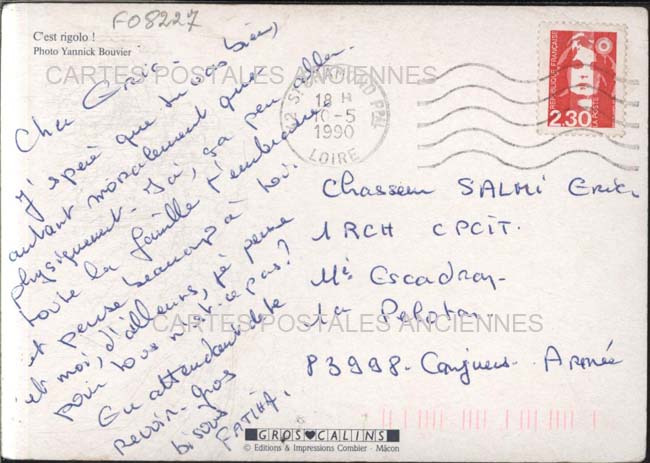 F08227
C'est rigolo !
Photo Yannick Bouvier
CARTES POSTALES ANCIENNES
Cher Eric,
J'éspère que tu vas bien,
autant moralement que
physiquement - Moi, ça peu aller.
toute la famille t'embrasses
et pense beaucoup à toi.
et moi, d'ailleurs, je pense
pour tous n'est-ce pas?
En attendant de te
revoir - gros
bisous
FATIHA.
42 ST CHAMOND PPAL
18 H
10-5
1990
LOIRE
REPUBLIQUE FRANÇAISE
LA POSTE
2,30
Chasseur SALMI Eric
1RCH CPCIT.
Escadron
1a Peloton
83998 - Canjuers - Armée
CARTES POSTALES ANCIENNES
GROS CALINS
© Editions & Impressions Combier - Mâcon